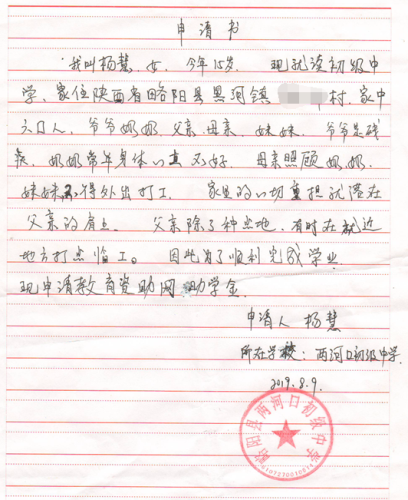 申请书
我叫杨慧,女,今年15岁. 现就读初级中
学、家住陕西省略阳县黑河镇 村.家中
六口人,爷爷奶奶.父亲.母亲、妹妹. 爷爷是残
疾.奶奶常年身体以真不好 母亲照顾奶奶.
妹妹不得外出打工. 家里的以切重担就落在
父亲的肩上. 父亲除了种点地,有时在就近
地方打点临工。 因此为了顺利完成学业
现申请教育资助网助学金.
申请人 杨慧
所在学校:两河口初级中学
2019.8.9.
略阳县两河口初级中学